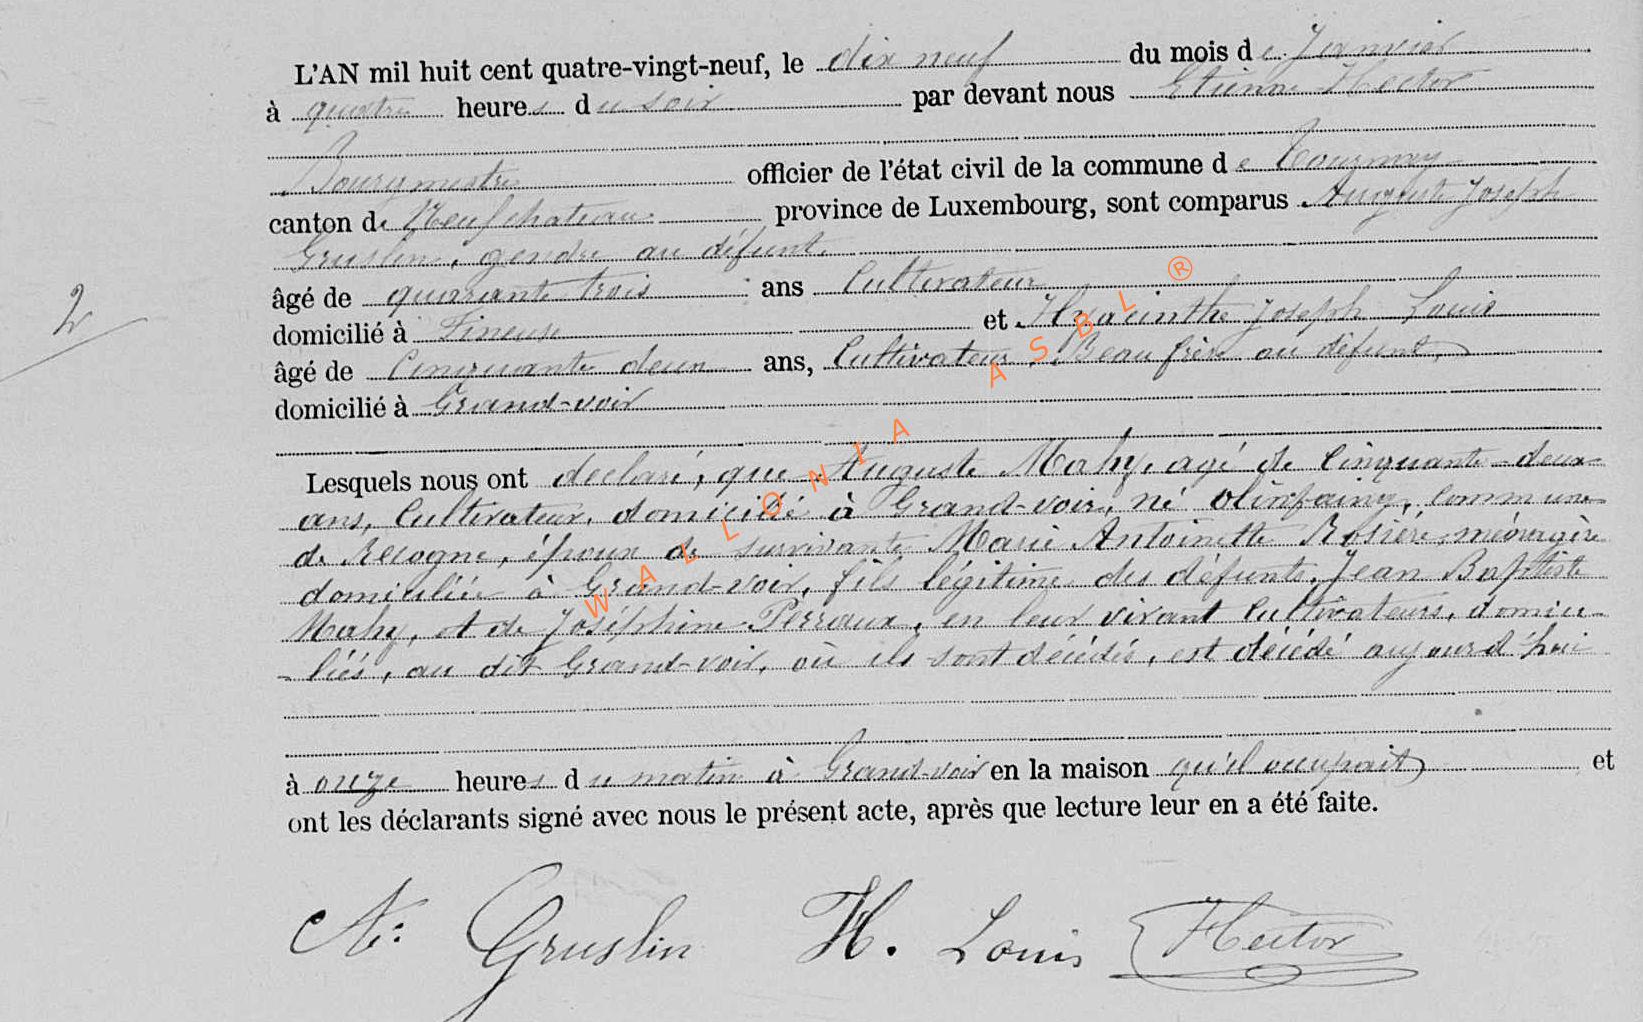 L'AN mil huit cent quatre-vingt-neuf, le dix neuf du mois de Janvier
à quatre heures du soir par devant nous Etienne Hector
Bourgmestre officier de l'état civil de la commune de Tournay
canton de Neufchateau province de Luxembourg, sont comparus Auguste Joseph
Gruslin, gendre au défunt,
âgé de quarante trois ans Cultivateur
domicilié à Tineuse et Hyacinthe Joseph Louis
âgé de Cinquante deux ans, Cultivateur, Beau frère au défunt,
domicilié à Grand-voir
2
Lesquels nous ont déclaré, que Auguste Mahy, agé de Cinquante-deux
ans, Cultivateur, domicilié à Grand-voir, né olinfaing, Commune
de Recogne, époux de survivante Marie Antoinette Rosière, ménagère
domiciliée à Grand-voir, fils légitime des défunts, Jean Baptiste
Mahy, et de Joséphine Perraux, en leur vivant Cultivateurs, domici-
-liés, au dit Grand-voir, où ils sont décédés, est décédé aujourd'hui
à onze heures du matin à Grand-voir en la maison qu'il occupait et
ont les déclarants signé avec nous le présent acte, après que lecture leur en a été faite.
A: Gruslin H. Louis Hector
WALLONIA ASBL ®